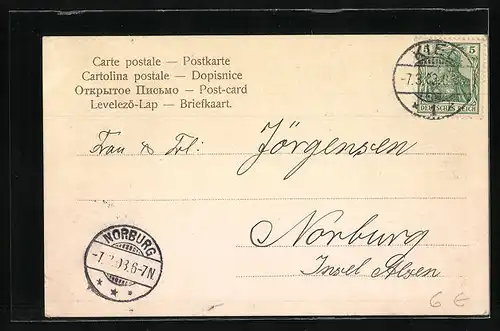 Carte postale — Postkarte
Cartolina postale — Dopisnice
Открытое Письмо — Post-card
Levelező-Lap — Briefkaart.
5 5
DEUTSCHES REICH
-7.3.03.
Frau & Frl: Jörgensen
Norburg
Insel Alsen
NORBURG
-7.3.03.6-7N
6 €